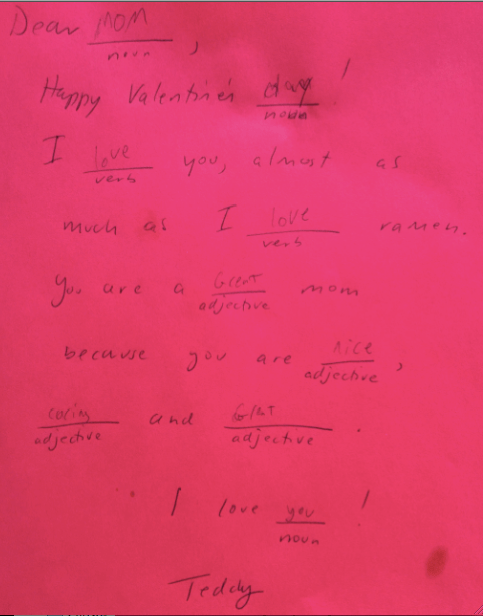 Dear MOM,
noun
Happy Valentine's day!
noun
I love you, almost as
verb
much as I love ramen.
verb
You are a GreNT mom
adjective
because you are nice,
adjective
caring and GrAT.
adjective adjective
I love you!
noun
Teddy